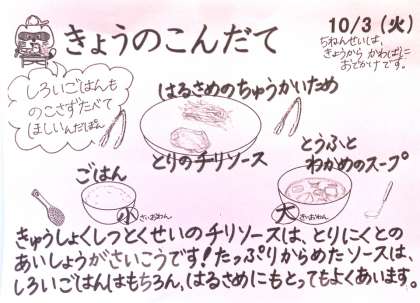 きょうのこんだて
10/3 (火)
ぢねんせいは、
きょうから かわばに
おでかけです。
しろいごはんも
のこさずたべて
ほしいんだぱん
はるさめのちゅうかいため
とりのチリソース
ごはん
小 さいおわん
とうふと
わかめのスープ
大 きいおわん
きゅうしょくしつとくせいのチリソースは、とりにくとの
あいしょうがさいこうです!たっぷりからめたソースは、
しろいごはんはもちろん、はるさめにもとってもよくあいます。